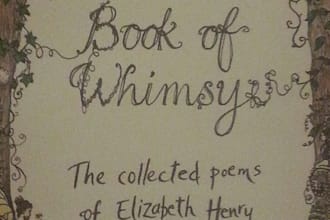 Book of
Whimsy
The collected poems
of Elizabeth Henry